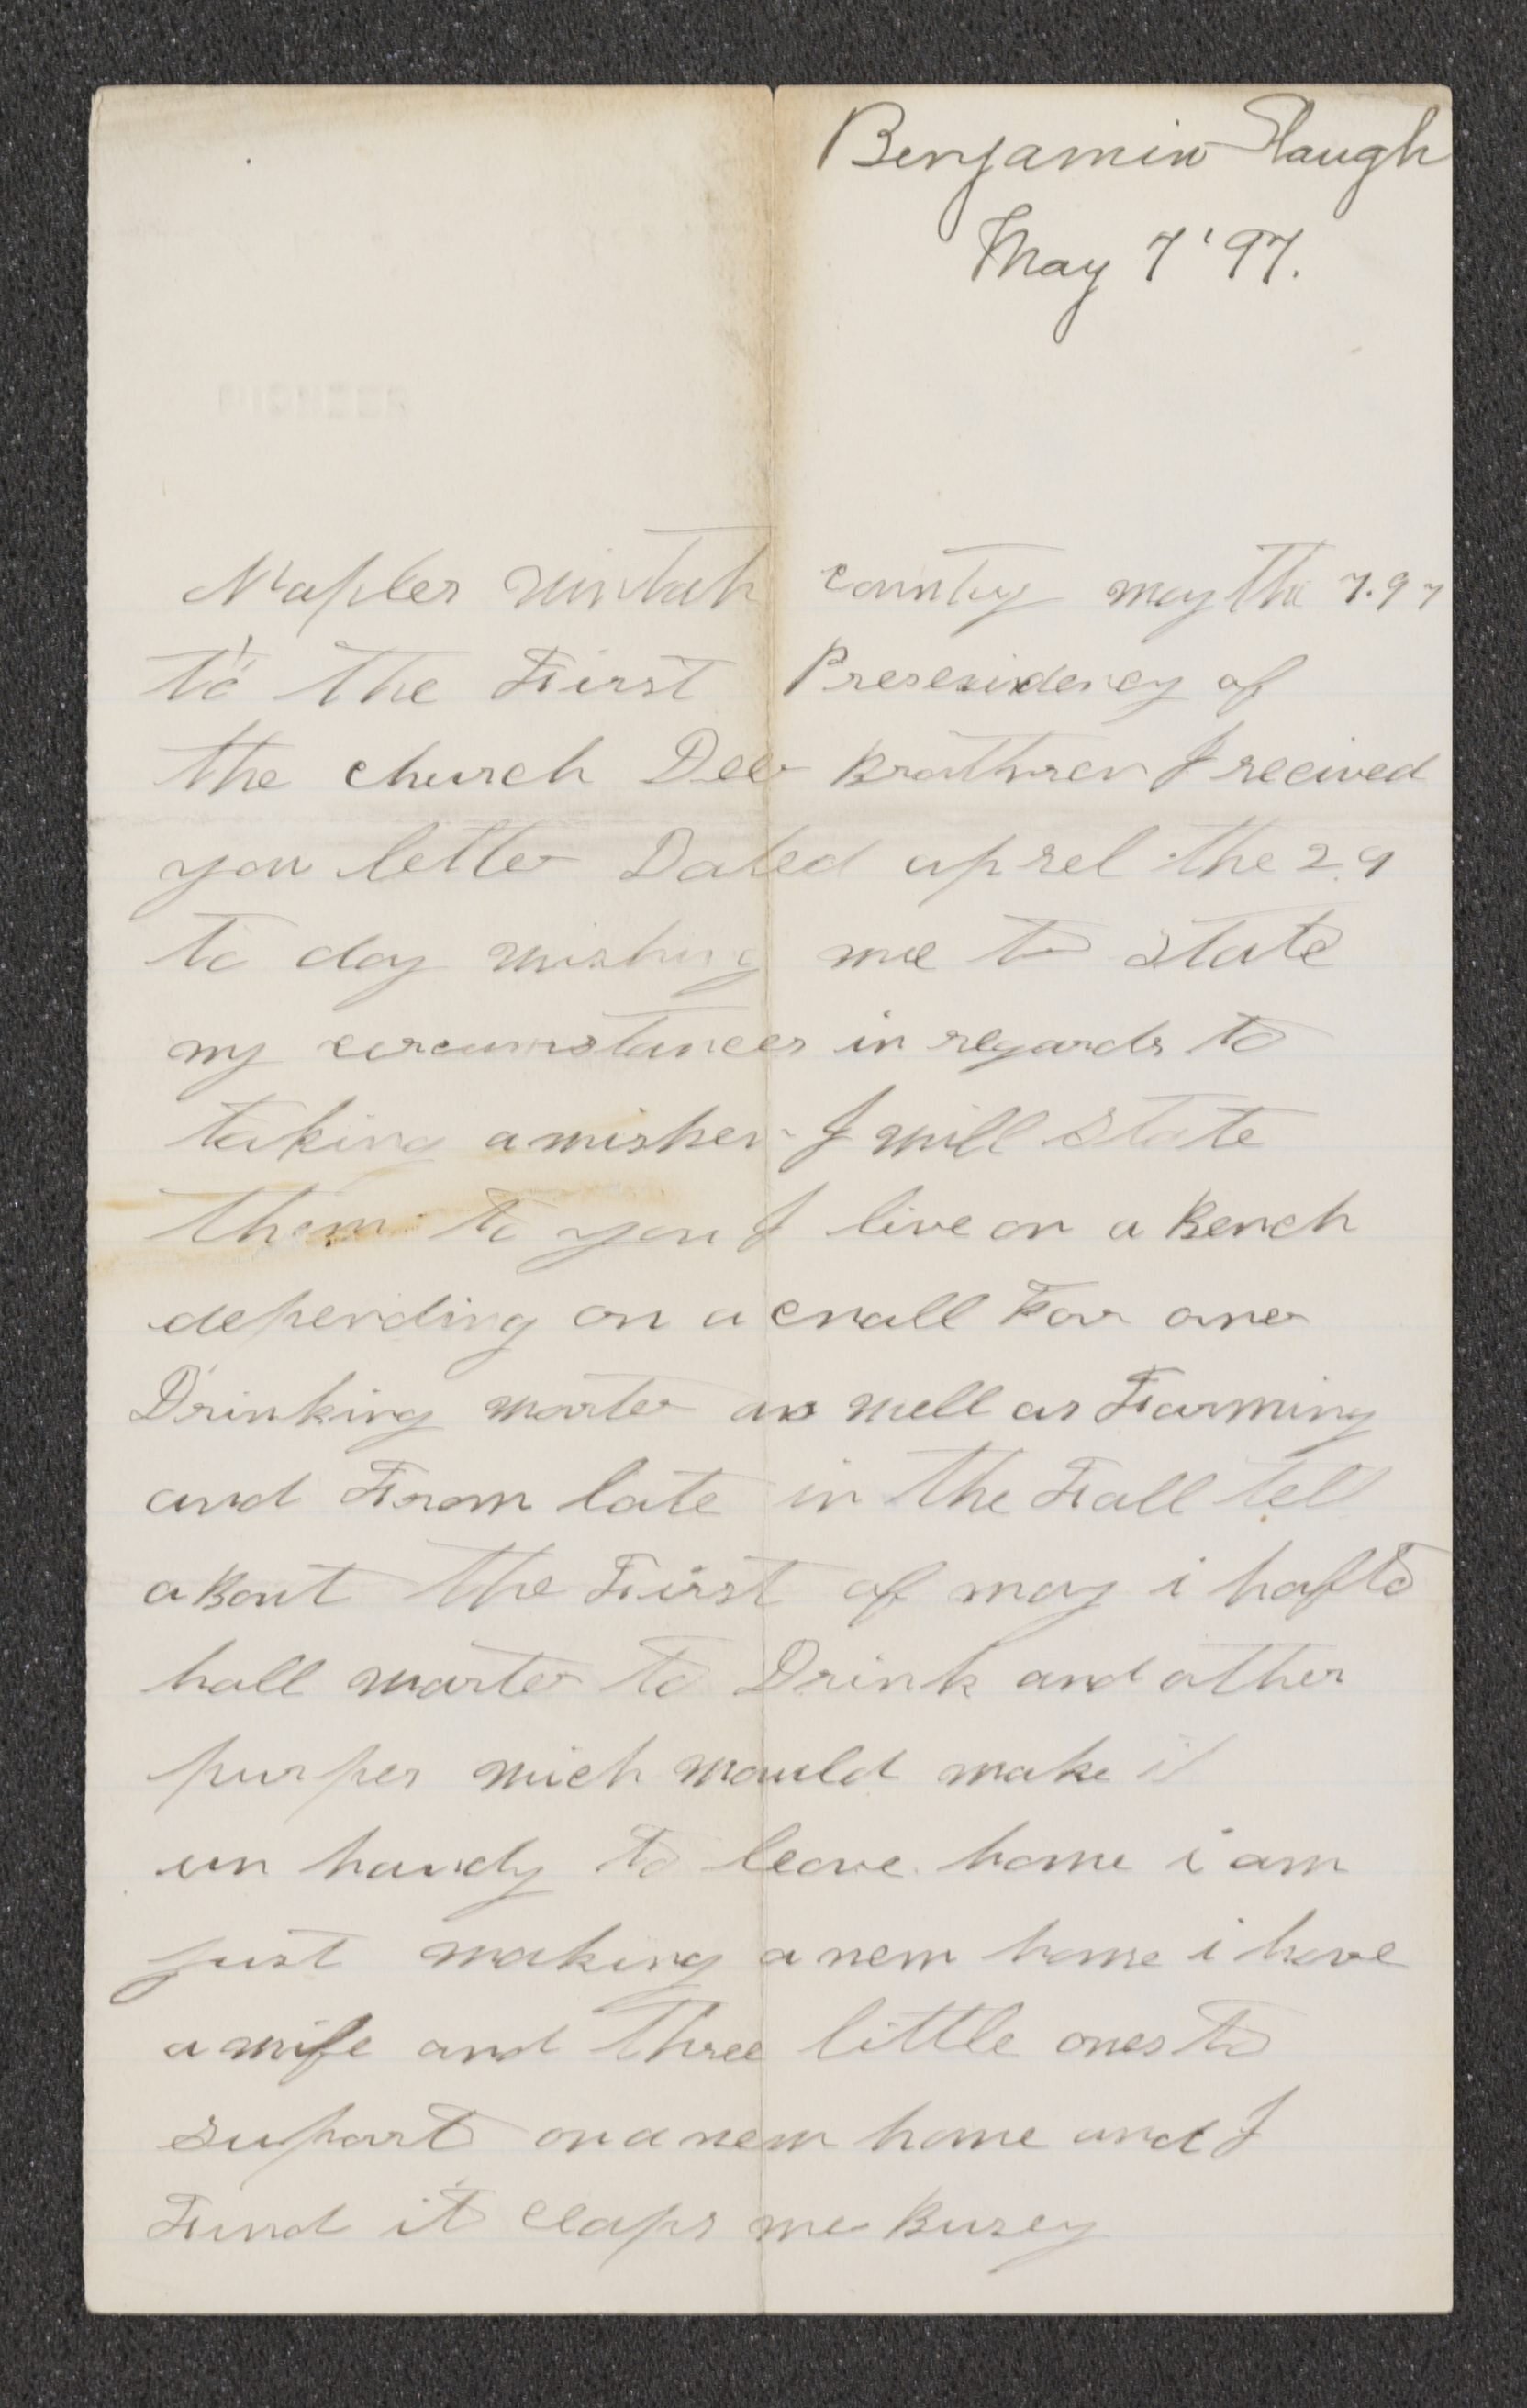 Benjamin Slaugh
May 7 '97.
Naples Uintah county may the 7.97
to the First Presesidency of
the church Deer Brothren I recived
you letter Dated aprel the 29
to day wishing me to state
my circumstances in regards to
taking a mishen I will State
them to you I live on a Bench
depending on a cnall For our
Drinking warter as well as Farming
and From late in the Fall tell
a Bout the First of may i hafto
hall warter to Drink and other
purpes wich would make it
un handy to leave home i am
just making a new home i have
a wife and three little ones to
suport on a new home and I
Find it ceaps me Busey